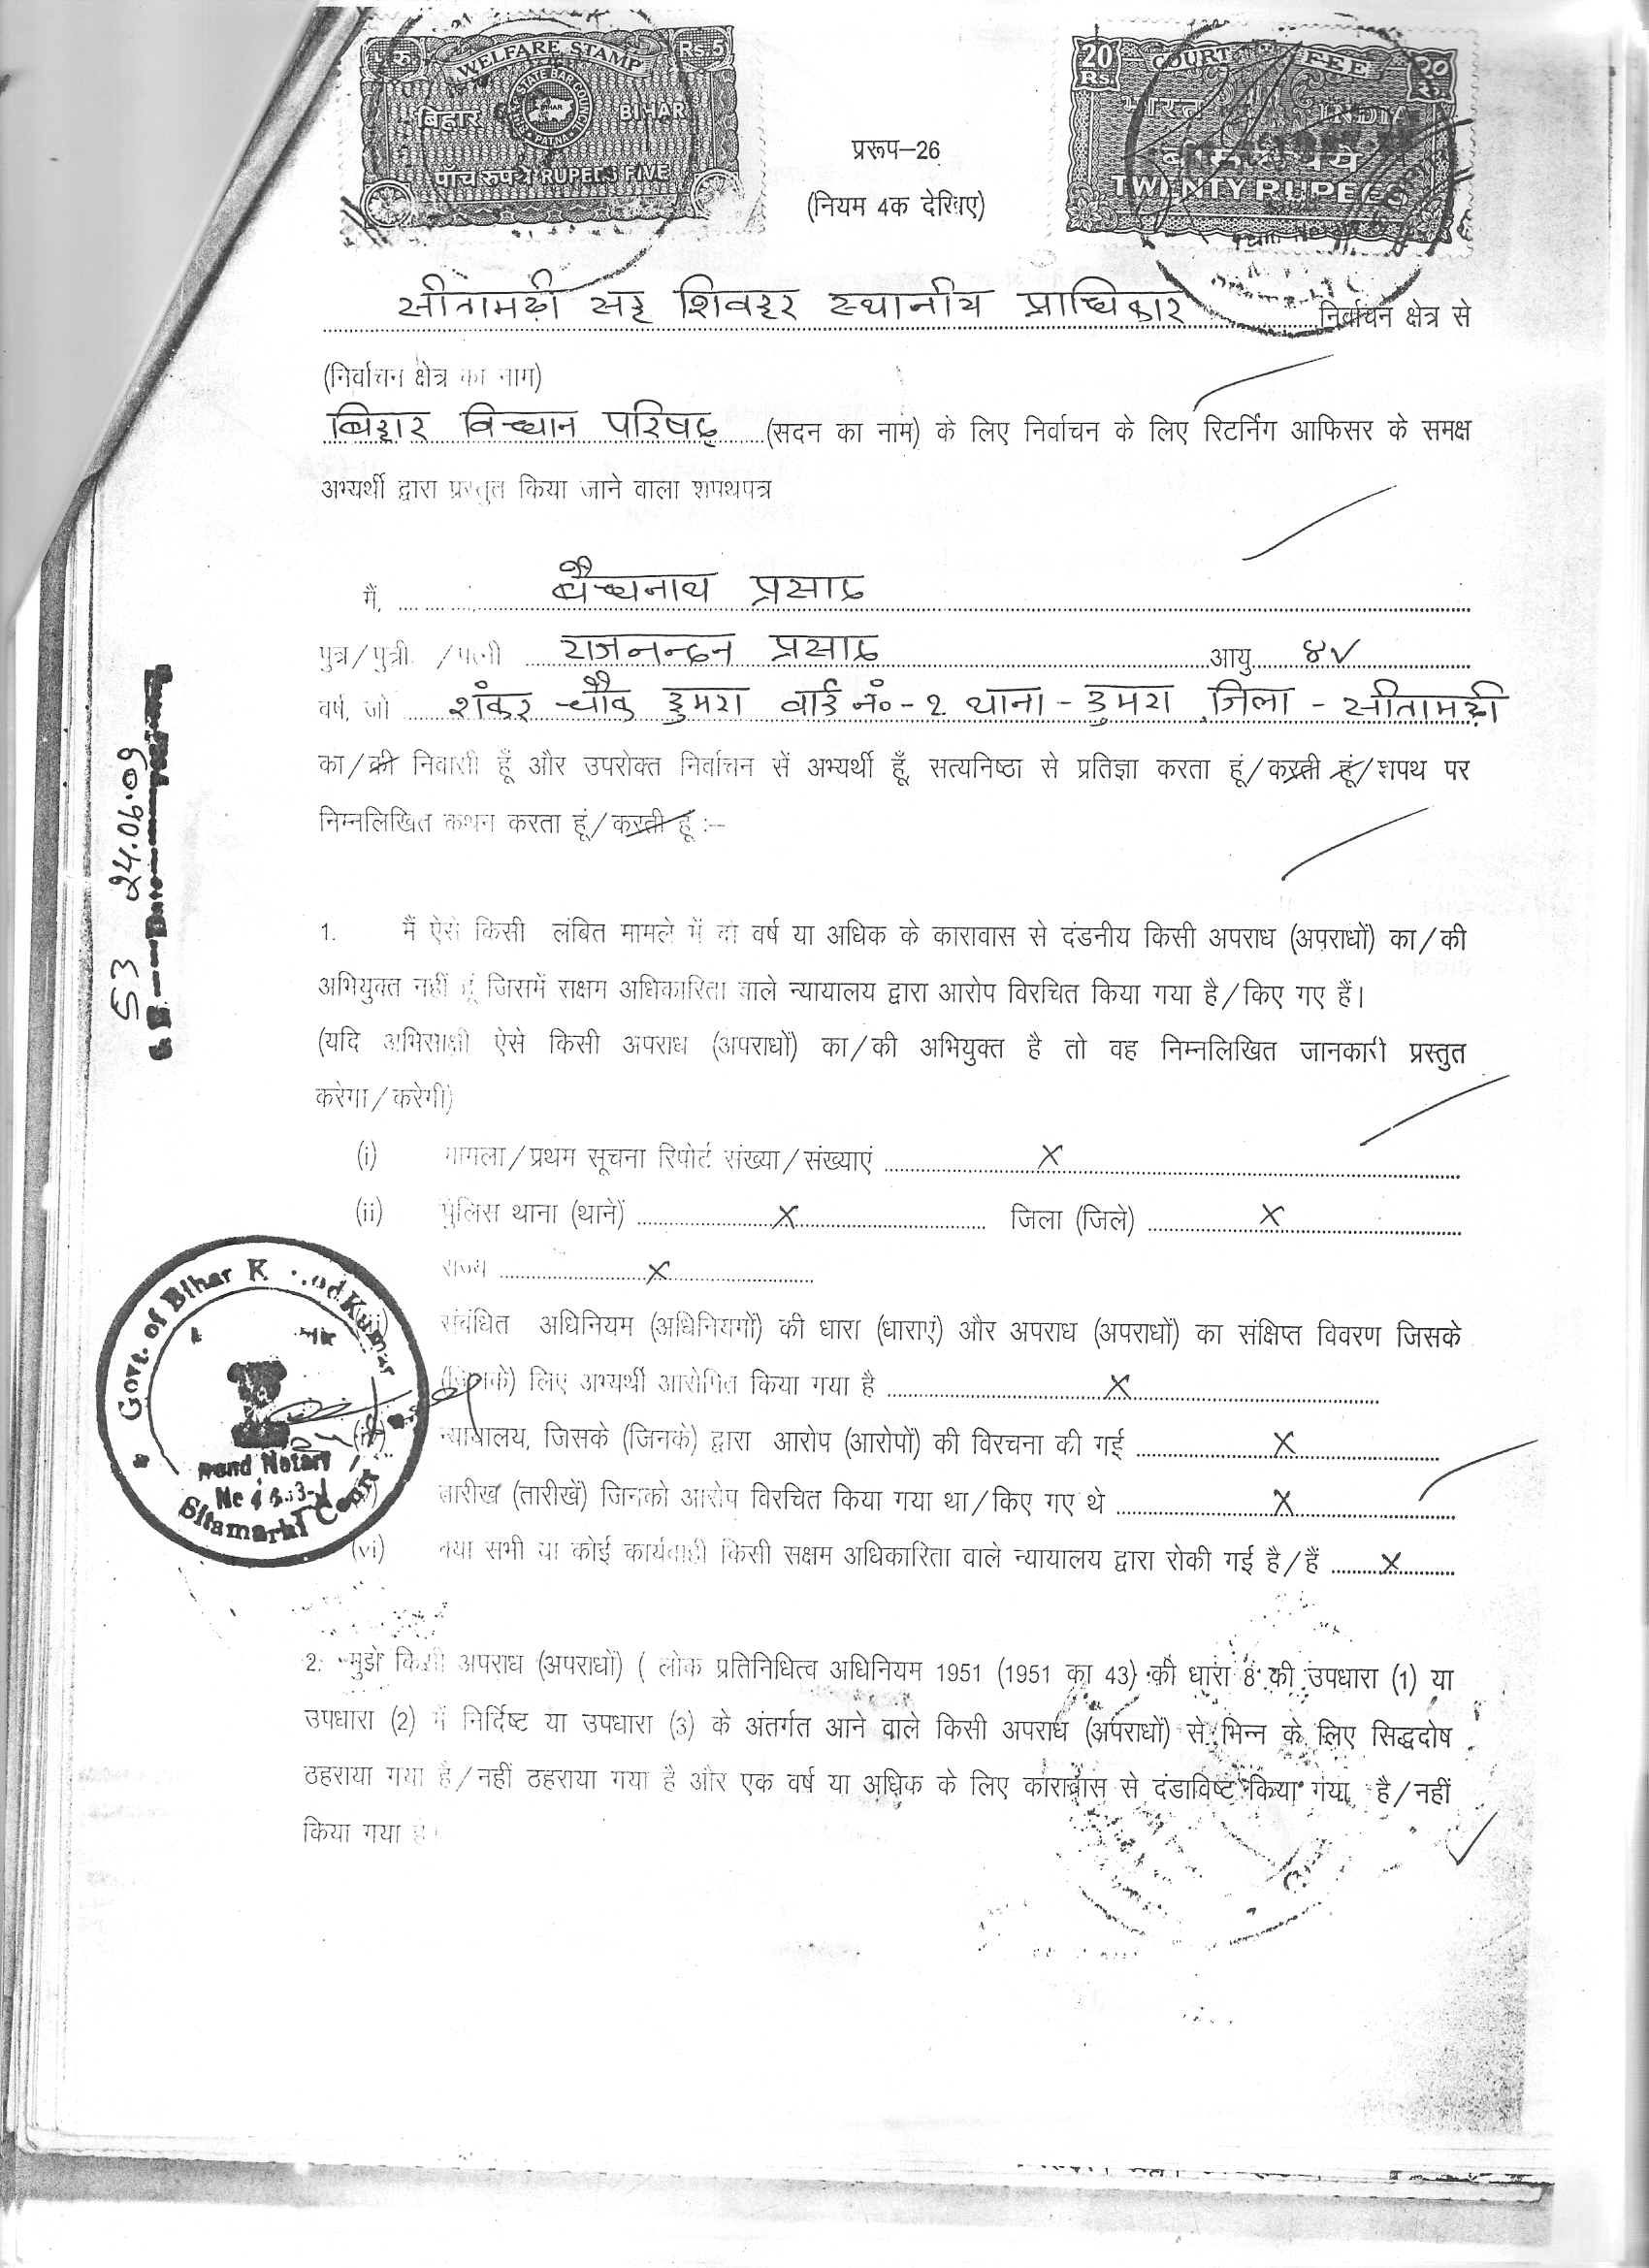 रु. 5 WELFARE STAMP Rs. 5
BIHAR STATE BAR COUNCIL PATNA
बिहार BIHAR
पाँच रुपये RUPEES FIVE
20 Rs. COURT FEE 20
भारत INDIA
बीस रुपये
TWENTY RUPEES
प्ररूप–26
(नियम 4क देखिए)
सीतामढ़ी सह शिवहर स्थानीय प्राधिकार निर्वाचन क्षेत्र से
(निर्वाचन क्षेत्र का नाम)
बिहार विधान परिषद् (सदन का नाम) के लिए निर्वाचन के लिए रिटर्निंग आफिसर के समक्ष
अभ्यर्थी द्वारा प्रस्तुत किया जाने वाला शपथपत्र
मैं, बैद्यनाथ प्रसाद
पुत्र/पुत्री /पत्नी राजनन्दन प्रसाद आयु
वर्ष, जो शंकर चौक डुमरा वार्ड नं०-2 थाना - डुमरा जिला - सीतामढ़ी
का/की निवासी हूँ और उपरोक्त निर्वाचन सें अभ्यर्थी हूँ, सत्यनिष्ठा से प्रतिज्ञा करता हूं/करती हूं/शपथ पर
निम्नलिखित कथन करता हूं/करती हूं :–
53 24.06.09
1. मैं ऐसे किसी लंबित मामले में दो वर्ष या अधिक के कारावास से दंडनीय किसी अपराध (अपराधों) का/की
अभियुक्त नहीं हूं जिसमें सक्षम अधिकारिता वाले न्यायालय द्वारा आरोप विरचित किया गया है/किए गए हैं।
(यदि अभिसाक्षी ऐसे किसी अपराध (अपराधों) का/की अभियुक्त है तो वह निम्नलिखित जानकारी प्रस्तुत
करेगा/करेगी)
(i) मामला/प्रथम सूचना रिपोर्ट संख्या/संख्याएं X
(ii) पुलिस थाना (थाने) X जिला (जिले) X
राज्य X
संबंधित अधिनियम (अधिनियमों) की धारा (धाराएं) और अपराध (अपराधों) का संक्षिप्त विवरण जिसके
(जिनके) लिए अभ्यर्थी आरोपित किया गया है X
न्यायालय, जिसके (जिनके) द्वारा आरोप (आरोपों) की विरचना की गई X
तारीख (तारीखें) जिनको आरोप विरचित किया गया था/किए गए थे X
(vi) क्या सभी या कोई कार्यवाही किसी सक्षम अधिकारिता वाले न्यायालय द्वारा रोकी गई है/हैं X
Govt. of Bihar Kumar
Notary
Sitamarhi Court
2. मुझे किसी अपराध (अपराधों) ( लोक प्रतिनिधित्व अधिनियम 1951 (1951 का 43) की धारा 8 की उपधारा (1) या
उपधारा (2) में निर्दिष्ट या उपधारा (3) के अंतर्गत आने वाले किसी अपराध (अपराधों) से भिन्न के लिए सिद्धदोष
ठहराया गया है/नहीं ठहराया गया है और एक वर्ष या अधिक के लिए कारावास से दंडाविष्ट किया गया है/नहीं
किया गया है।